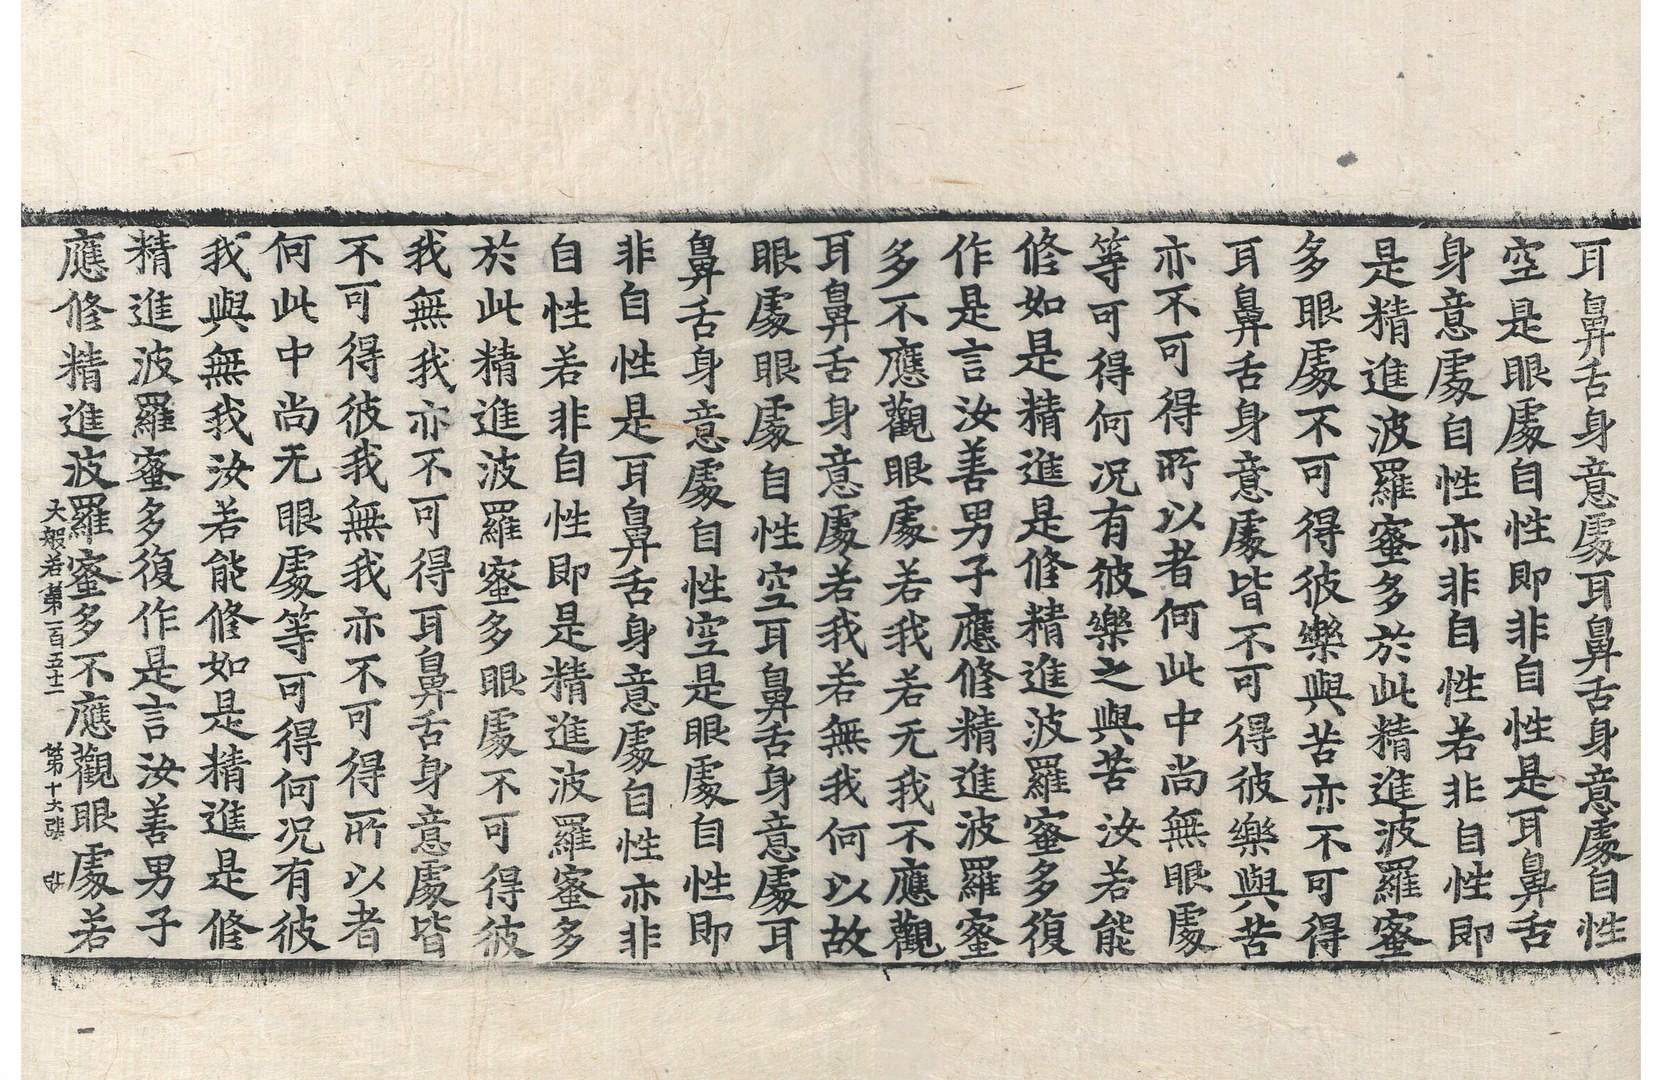 耳鼻舌身意處耳鼻舌身意處自性
空是眼處自性即非自性是耳鼻舌
身意處自性亦非自性若非自性即
是精進波羅蜜多於此精進波羅蜜
多眼處不可得彼樂與苦亦不可得
耳鼻舌身意處皆不可得彼樂與苦
亦不可得所以者何此中尚無眼處
等可得何况有彼樂之與苦汝若能
修如是精進是修精進波羅蜜多復
作是言汝善男子應修精進波羅蜜
多不應觀眼處若我若无我不應觀
耳鼻舌身意處若我若無我何以故
眼處眼處自性空耳鼻舌身意處耳
鼻舌身意處自性空是眼處自性即
非自性是耳鼻舌身意處自性亦非
自性若非自性即是精進波羅蜜多
於此精進波羅蜜多眼處不可得彼
我無我亦不可得耳鼻舌身意處皆
不可得彼我無我亦不可得所以者
何此中尚无眼處等可得何况有彼
我與無我汝若能修如是精進是修
精進波羅蜜多復作是言汝善男子
應修精進波羅蜜多不應觀眼處若
大般若第一百五十二 第十六張